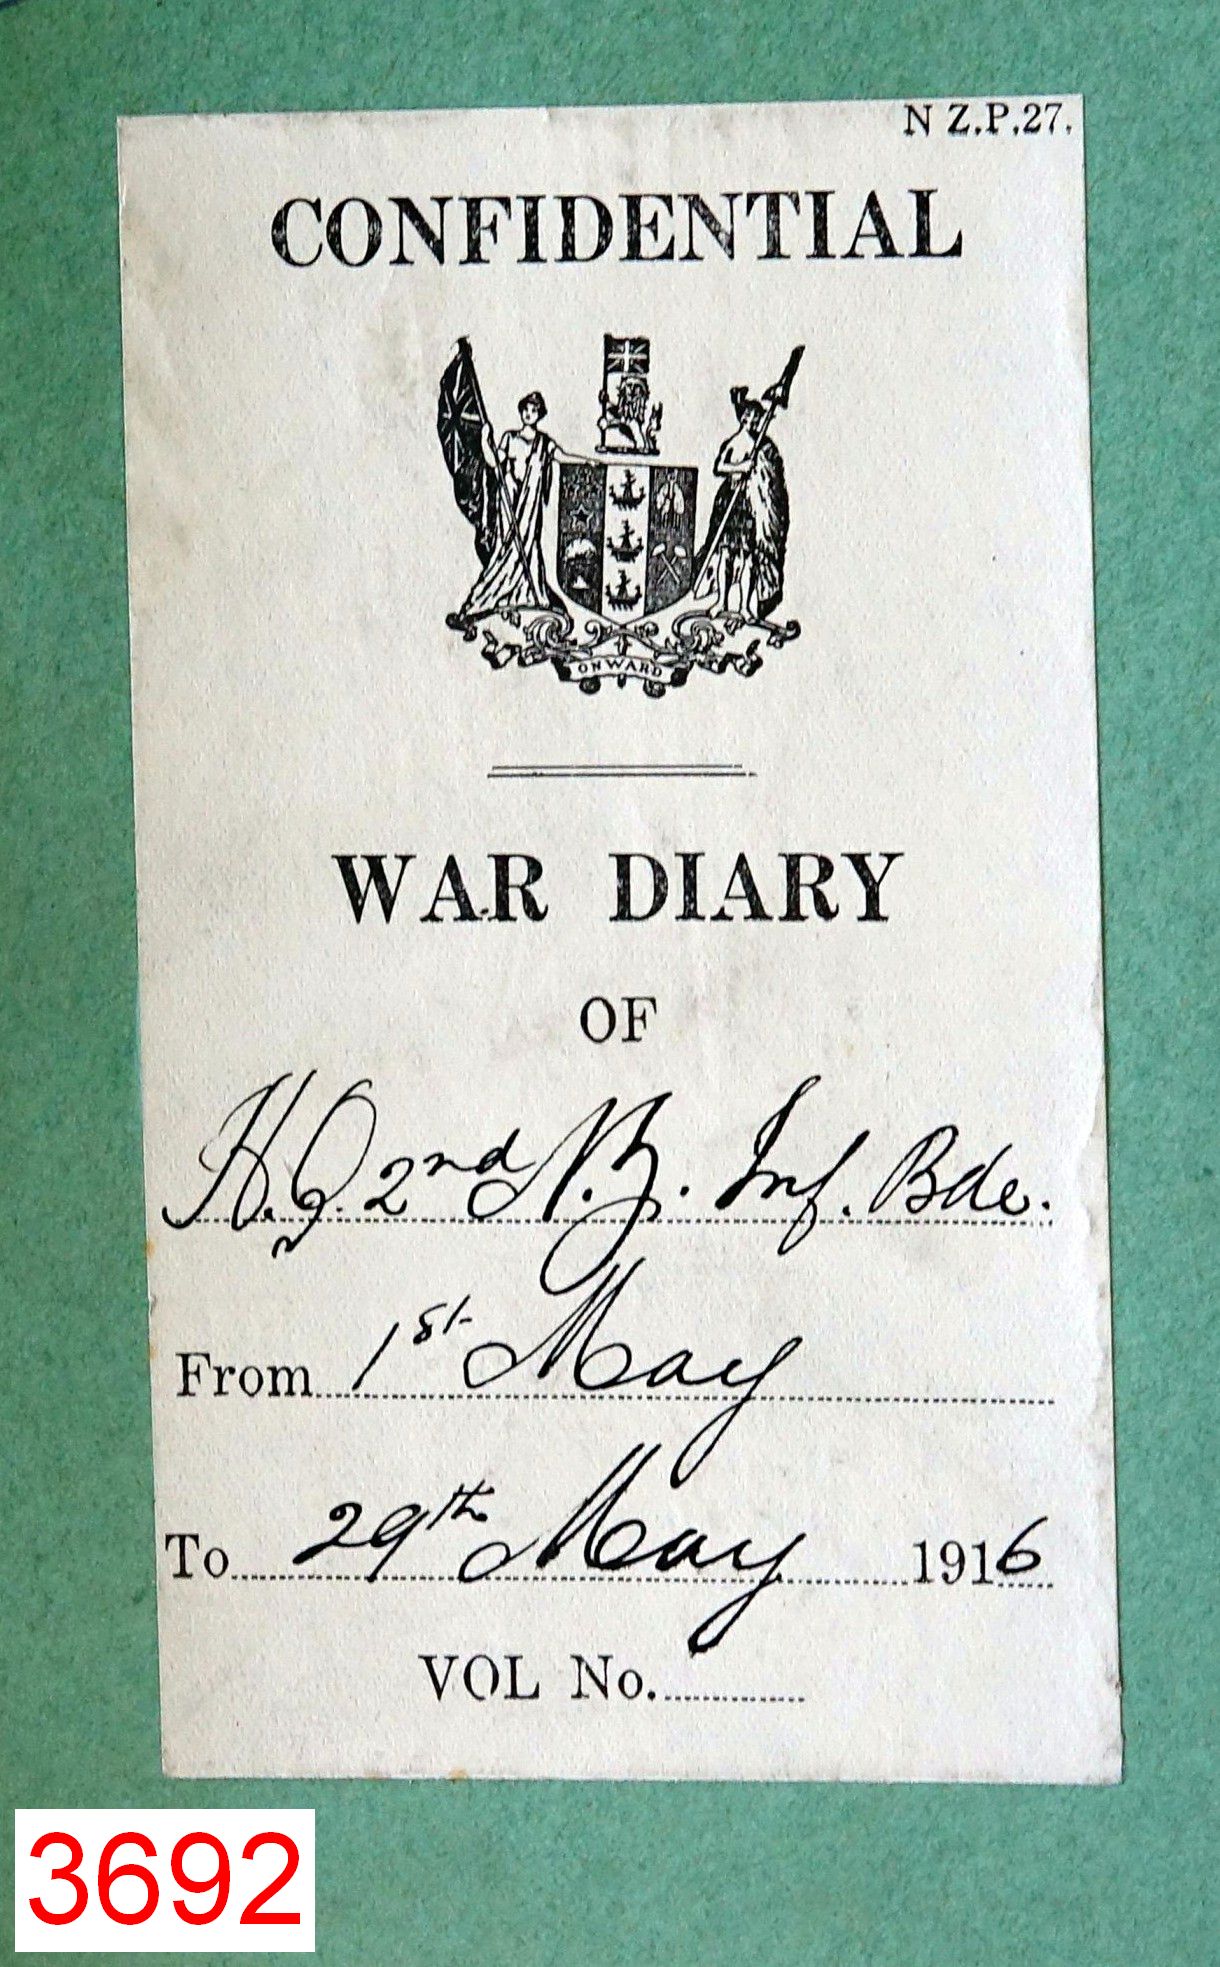 N Z.P.27.
CONFIDENTIAL
ONWARD
WAR DIARY
OF
H.Q. 2nd N.Z. Inf. Bde.
From 1st May
To 29th May 1916
VOL No.
3692